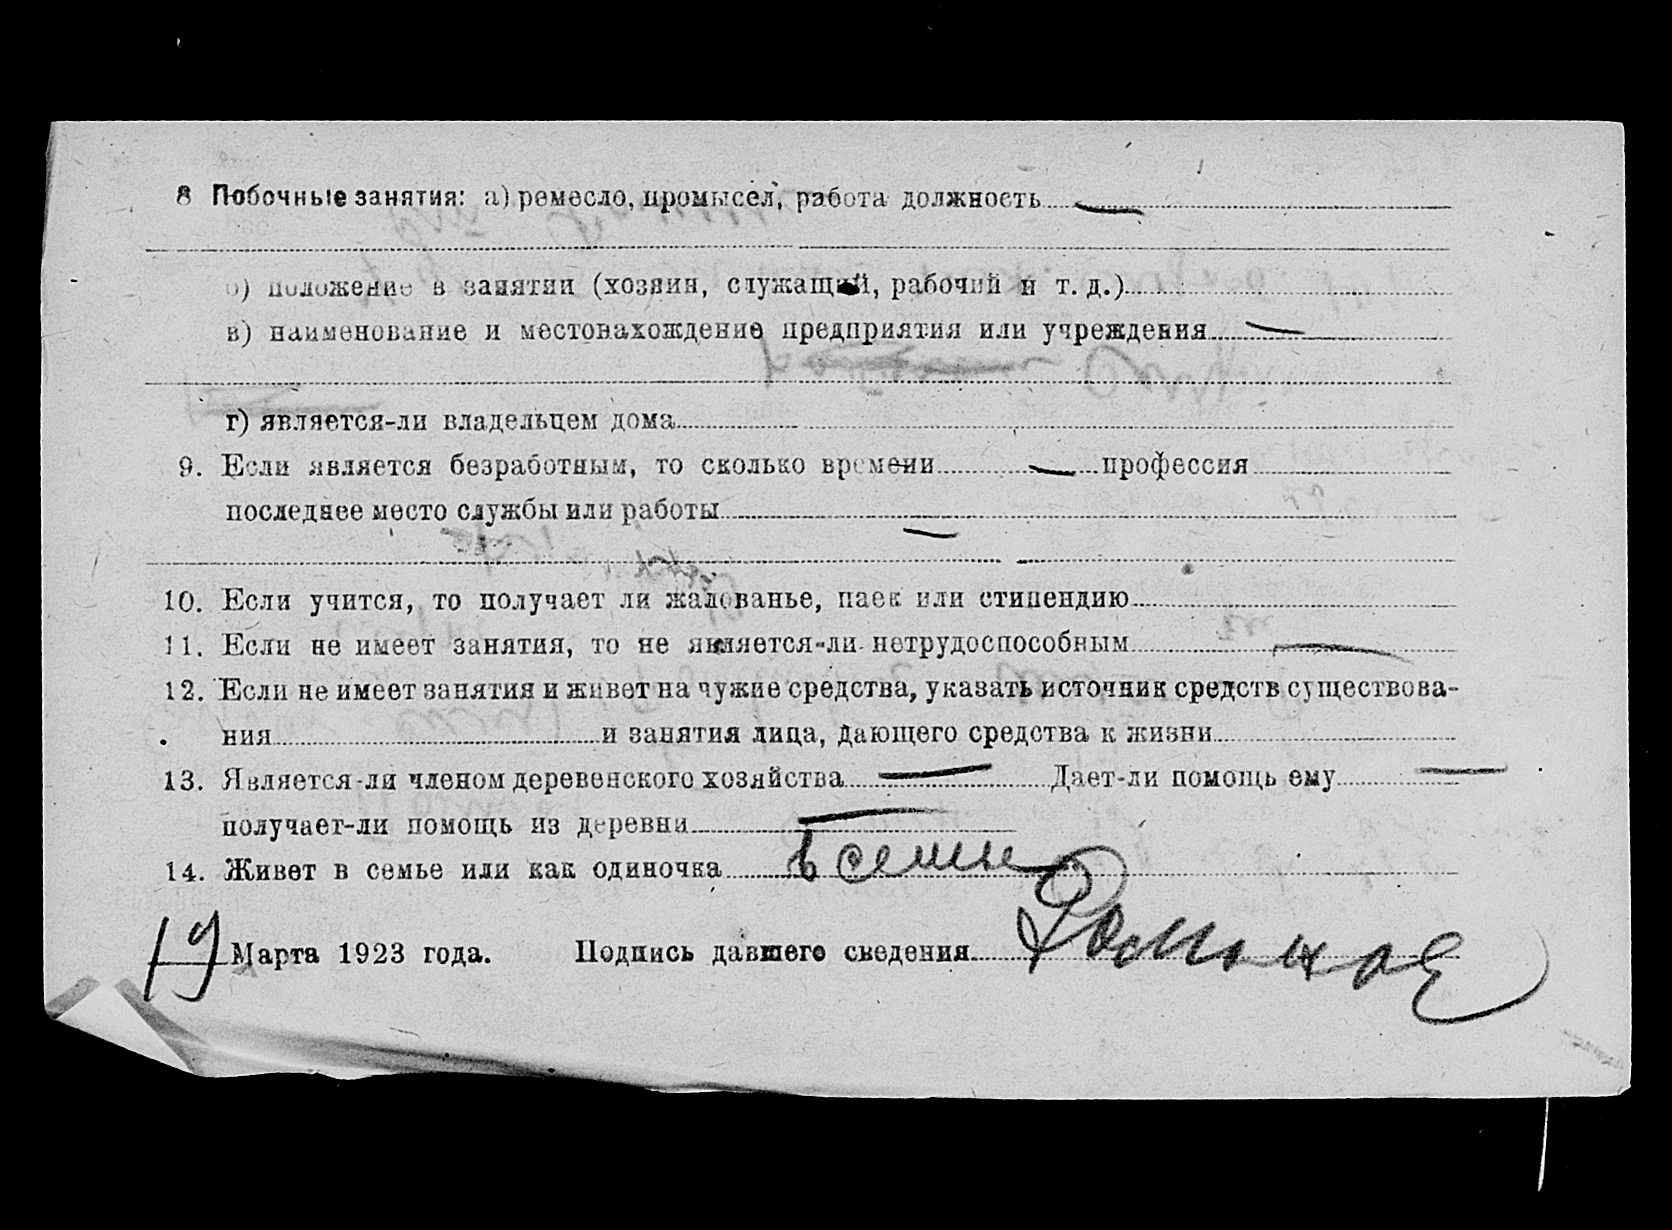 8 Побочные занятия: а) ремесло, промысел, работа должность —
б) положение в занятии (хозяин, служащий, рабочий и т. д.)
в) наименование и местонахождение предприятия или учреждения —
г) является-ли владельцем дома
9. Если является безработным, то сколько времени — профессия
последнее место службы или работы —
10. Если учится, то получает ли жалованье, паек или стипендию
11. Если не имеет занятия, то не является-ли нетрудоспособным —
12. Если не имеет занятия и живет на чужие средства, указать источник средств существова-
ния и занятия лица, дающего средства к жизни
13. Является-ли членом деревенского хозяйства — Дает-ли помощь ему —
получает-ли помощь из деревни —
14. Живет в семье или как одиночка в семье
19 Марта 1923 года. Подпись давшего сведения